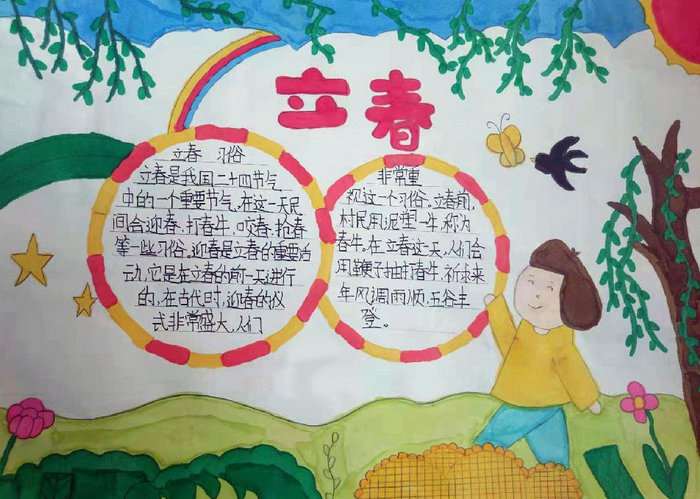 立春
立春 习俗
立春是我国二十四节气
中的一个重要节气,在这一天民
间会迎春、打春牛、咬春、抢春
等一些习俗。迎春是立春的重要活
动,它是在立春的前一天进行
的,在古代时,迎春的仪
式非常盛大,人们
非常重
视这一个习俗。立春前,
村民用泥塑一牛,称为
春牛。在立春这一天,人们会
用鞭子抽打春牛,祈求来
年风调雨顺、五谷丰
登。